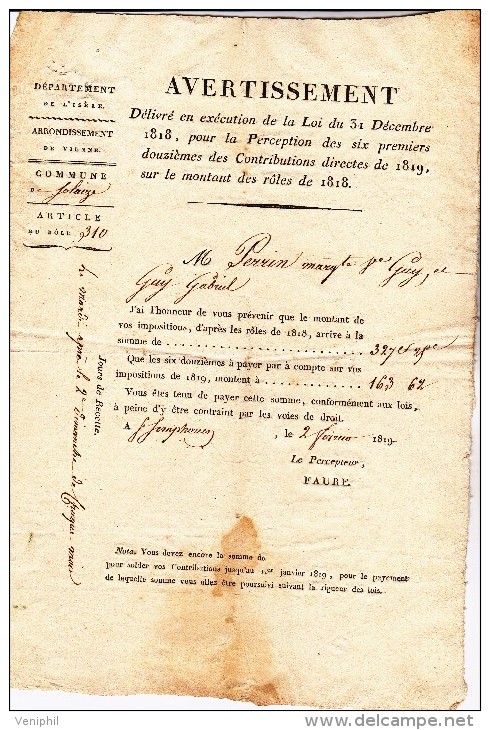 DÉPARTEMENT
DE L'ISÈRE.
ARRONDISSEMENT
DE VIENNE.
COMMUNE
DE Solaize
ARTICLE
DU RÔLE 310
AVERTISSEMENT
Délivré en exécution de la Loi du 31 Décembre
1818, pour la Perception des six premiers
douzièmes des Contributions directes de 1819,
sur le montant des rôles de 1818.
M Perrin Guy, et
Guy Gabriel
J'ai l'honneur de vous prévenir que le montant de
vos impositions, d'après les rôles de 1818, arrive à la
somme de 327
Que les six douzièmes à payer par à compte sur vos
impositions de 1819, montent à 163 62
Vous êtes tenu de payer cette somme, conformément aux lois,
à peine d'y être contraint par les voies de droit.
A St Simphorien, le 2 février 1819
Le Percepteur,
FAURE.
Jours de Recette.
Le mardi après le 2e Dimanche de chaque mois
Nota. Vous devez encore la somme de
pour solder vos Contributions jusqu'au 1.er janvier 1819, pour le payement
de laquelle somme vous allez être poursuivi suivant la rigueur des lois.
Veniphil
delcampe.net